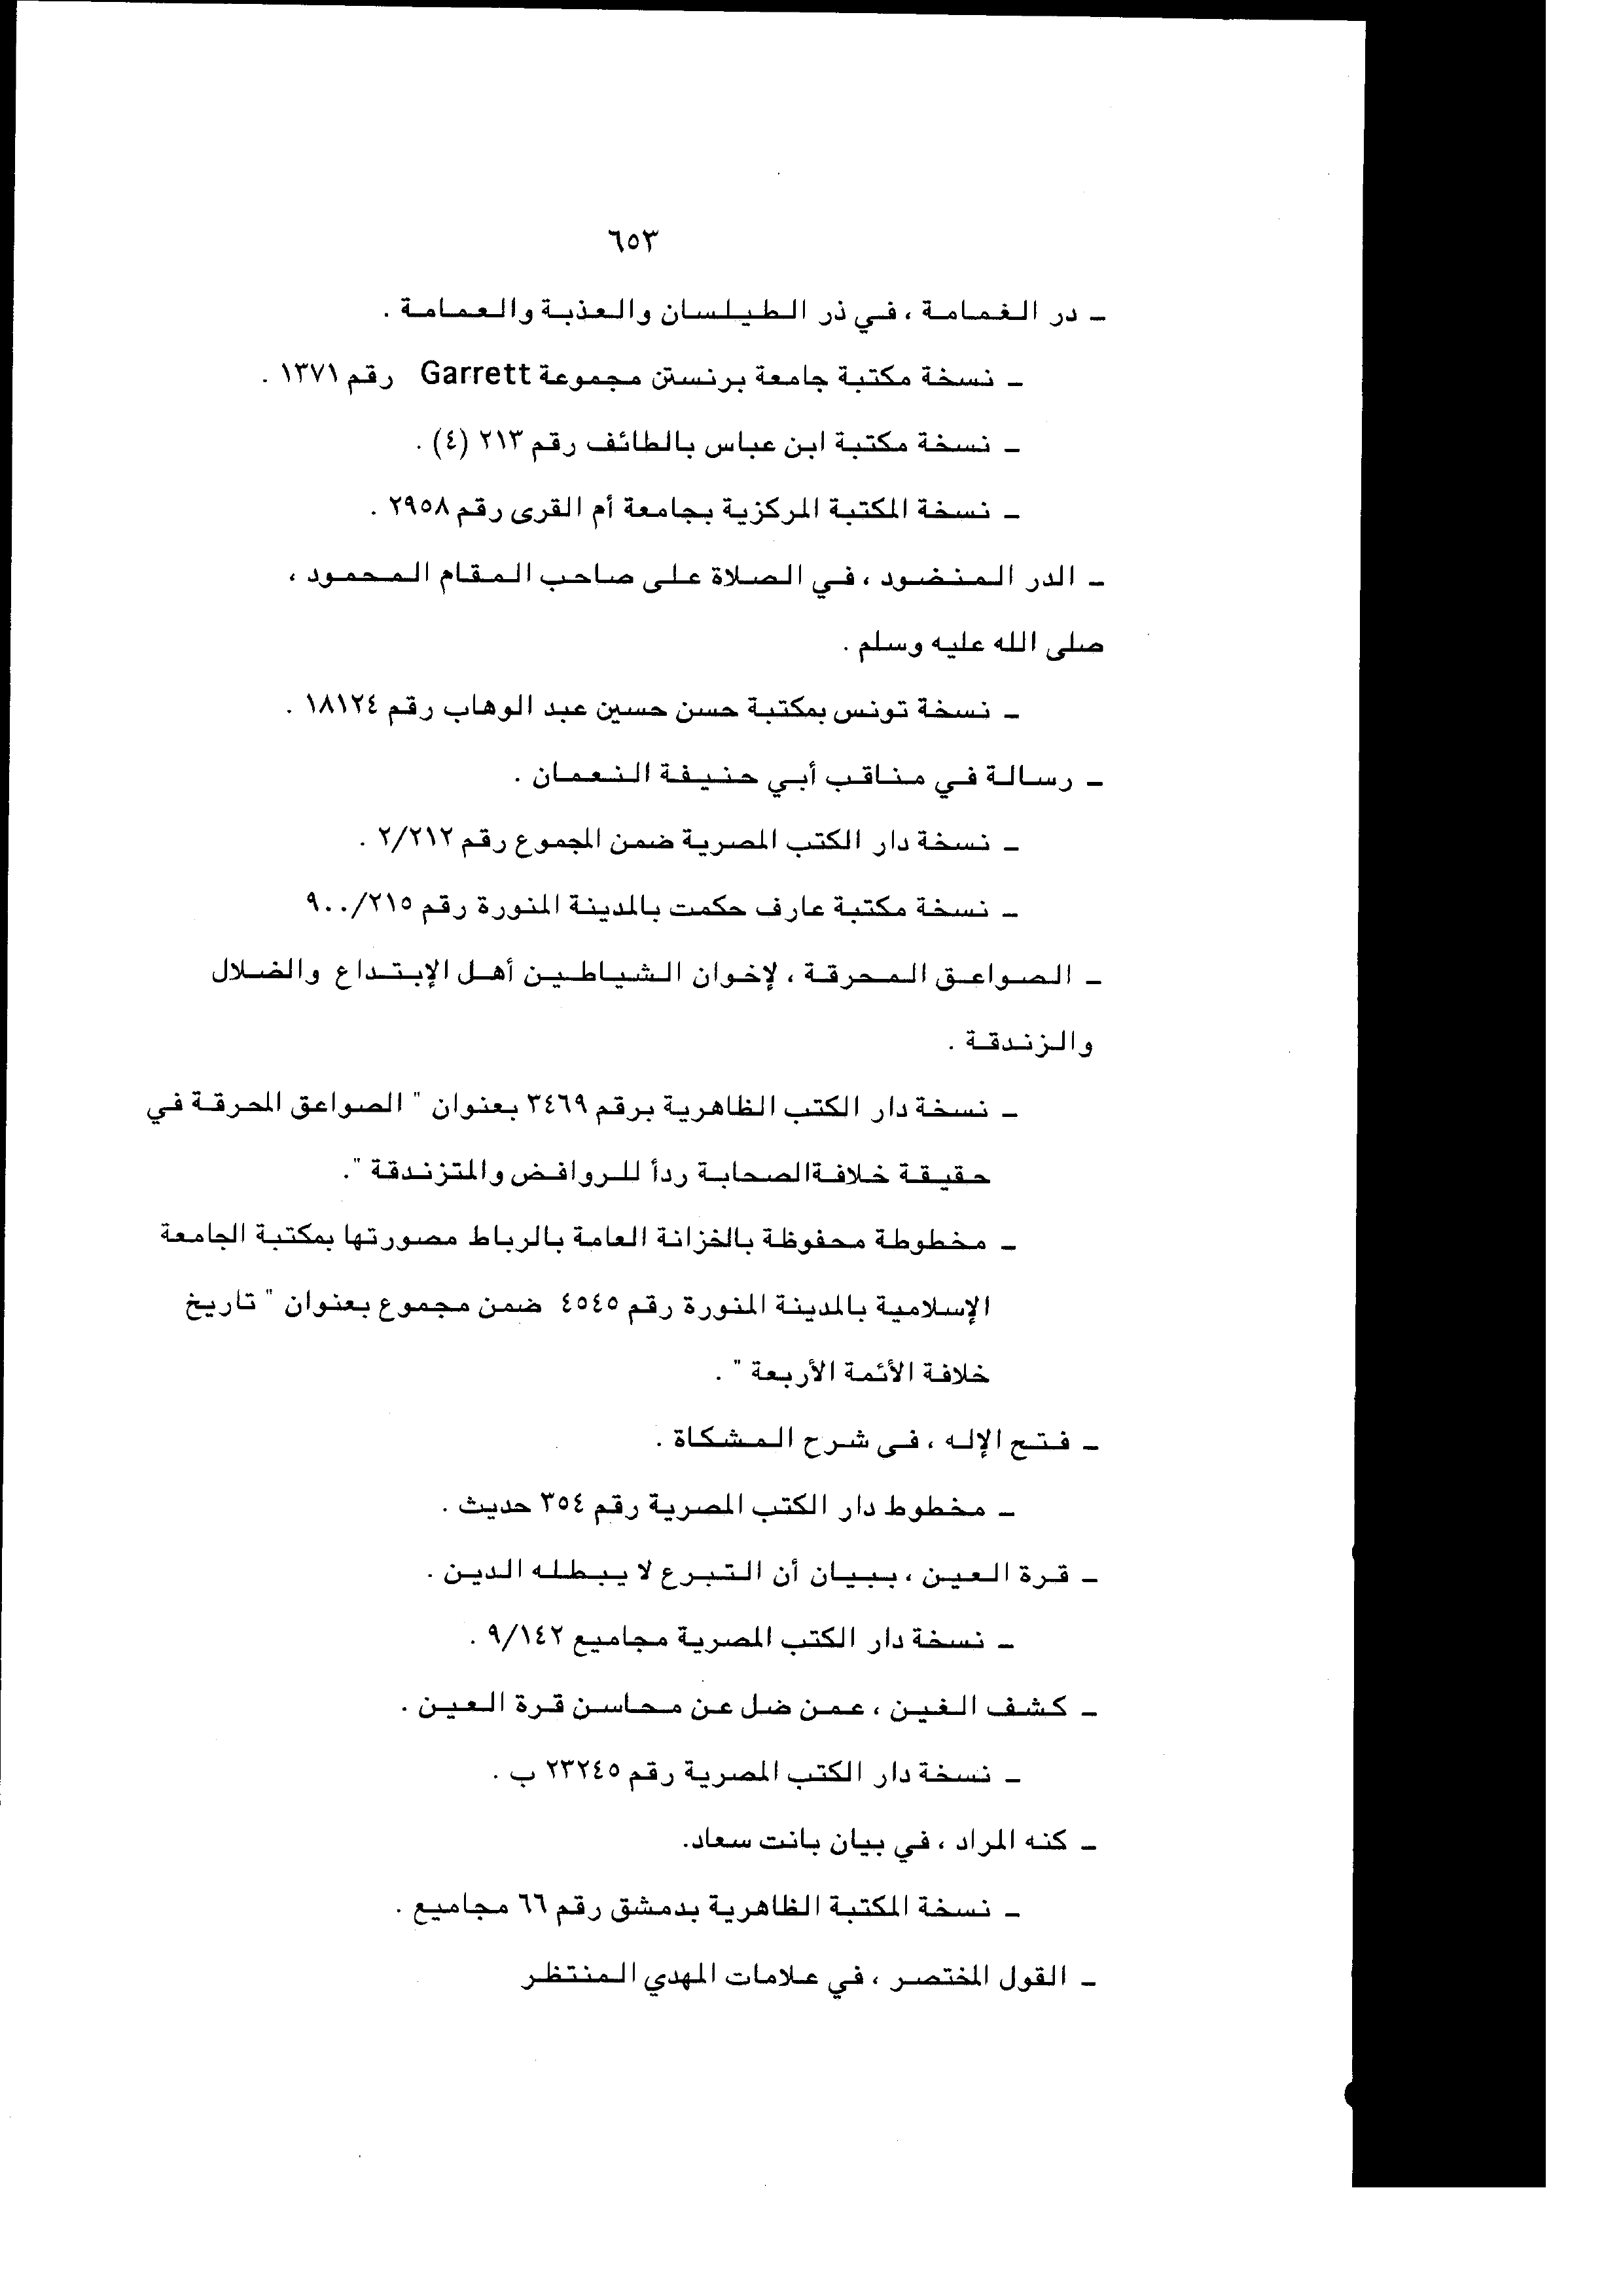 ٦٥٣
ـ در الغمامة ، في ذر الطيلسان والعذبة والعمامة .
ـ نسخة مكتبة جامعة برنستن مجموعة Garrett رقم ١٣٧١ .
ـ نسخة مكتبة ابن عباس بالطائف رقم ٢١٣ (٤) .
ـ نسخة المكتبة المركزية بجامعة أم القرى رقم ٢٩٥٨ .
ـ الدر المنضود ، في الصلاة على صاحب المقام المحمود ،
صلى الله عليه وسلم .
ـ نسخة تونس بمكتبة حسن حسين عبد الوهاب رقم ١٨١٢٤ .
ـ رسالة في مناقب أبي حنيفة النعمان .
ـ نسخة دار الكتب المصرية ضمن المجموع رقم ٢/٢١٢ .
ـ نسخة مكتبة عارف حكمت بالمدينة المنورة رقم ٩٠٠/٢١٥
ـ الصواعق المحرقة ، لإخوان الشياطين أهل الإبتداع والضلال
والزندقة .
ـ نسخة دار الكتب الظاهرية برقم ٣٤٦٩ بعنوان " الصواعق المحرقة في
حقيقة خلافة الصحابة ردأ للروافض والمتزندقة ".
ـ مخطوطة محفوظة بالخزانة العامة بالرباط مصورتها بمكتبة الجامعة
الإسلامية بالمدينة المنورة رقم ٤٥٤٥ ضمن مجموع بعنوان " تاريخ
خلافة الأئمة الأربعة " .
ـ فتح الإله ، فى شرح المشكاة .
ـ مخطوط دار الكتب المصرية رقم ٣٥٤ حديث .
ـ قرة العين ، ببيان أن التبرع لا يبطله الدين .
ـ نسخة دار الكتب المصرية مجاميع ٩/١٤٢ .
ـ كشف الغين ، عمن ضل عن محاسن قرة العين .
ـ نسخة دار الكتب المصرية رقم ٢٣٢٤٥ ب .
ـ كنه المراد ، في بيان بانت سعاد.
ـ نسخة المكتبة الظاهرية بدمشق رقم ٦٦ مجاميع .
ـ القول المختصر ، في علامات المهدي المنتظر